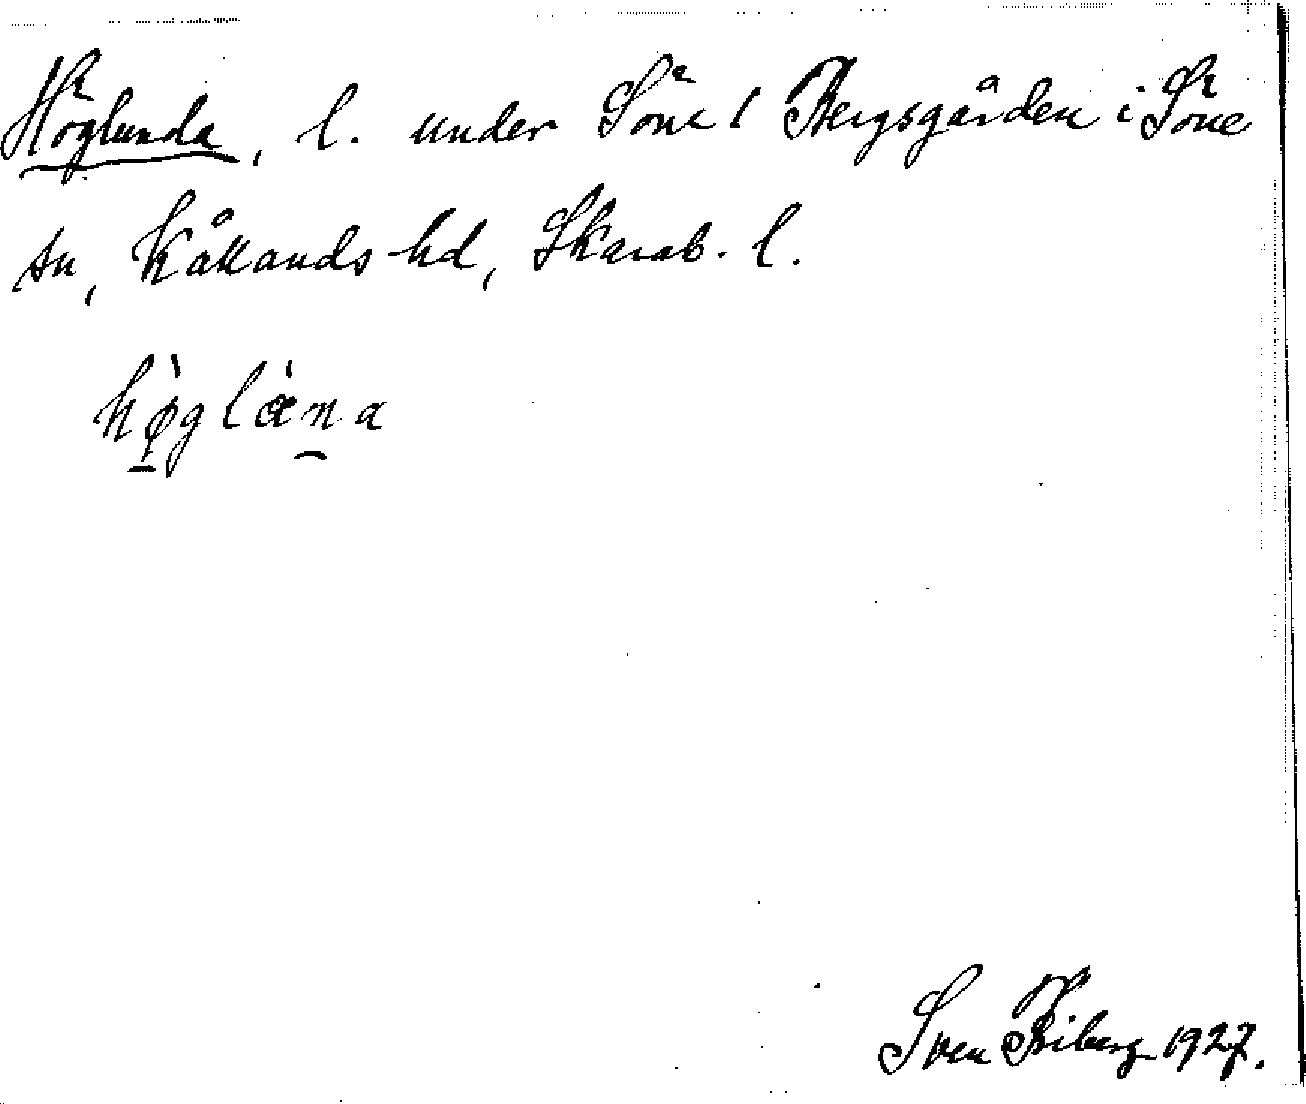 Höglunda, l. under Söne 1 Bergsgården i Söne
sn, Kållands hd, Skarab. l.
hø̀glæ̀na
Sven Biberg 1927.